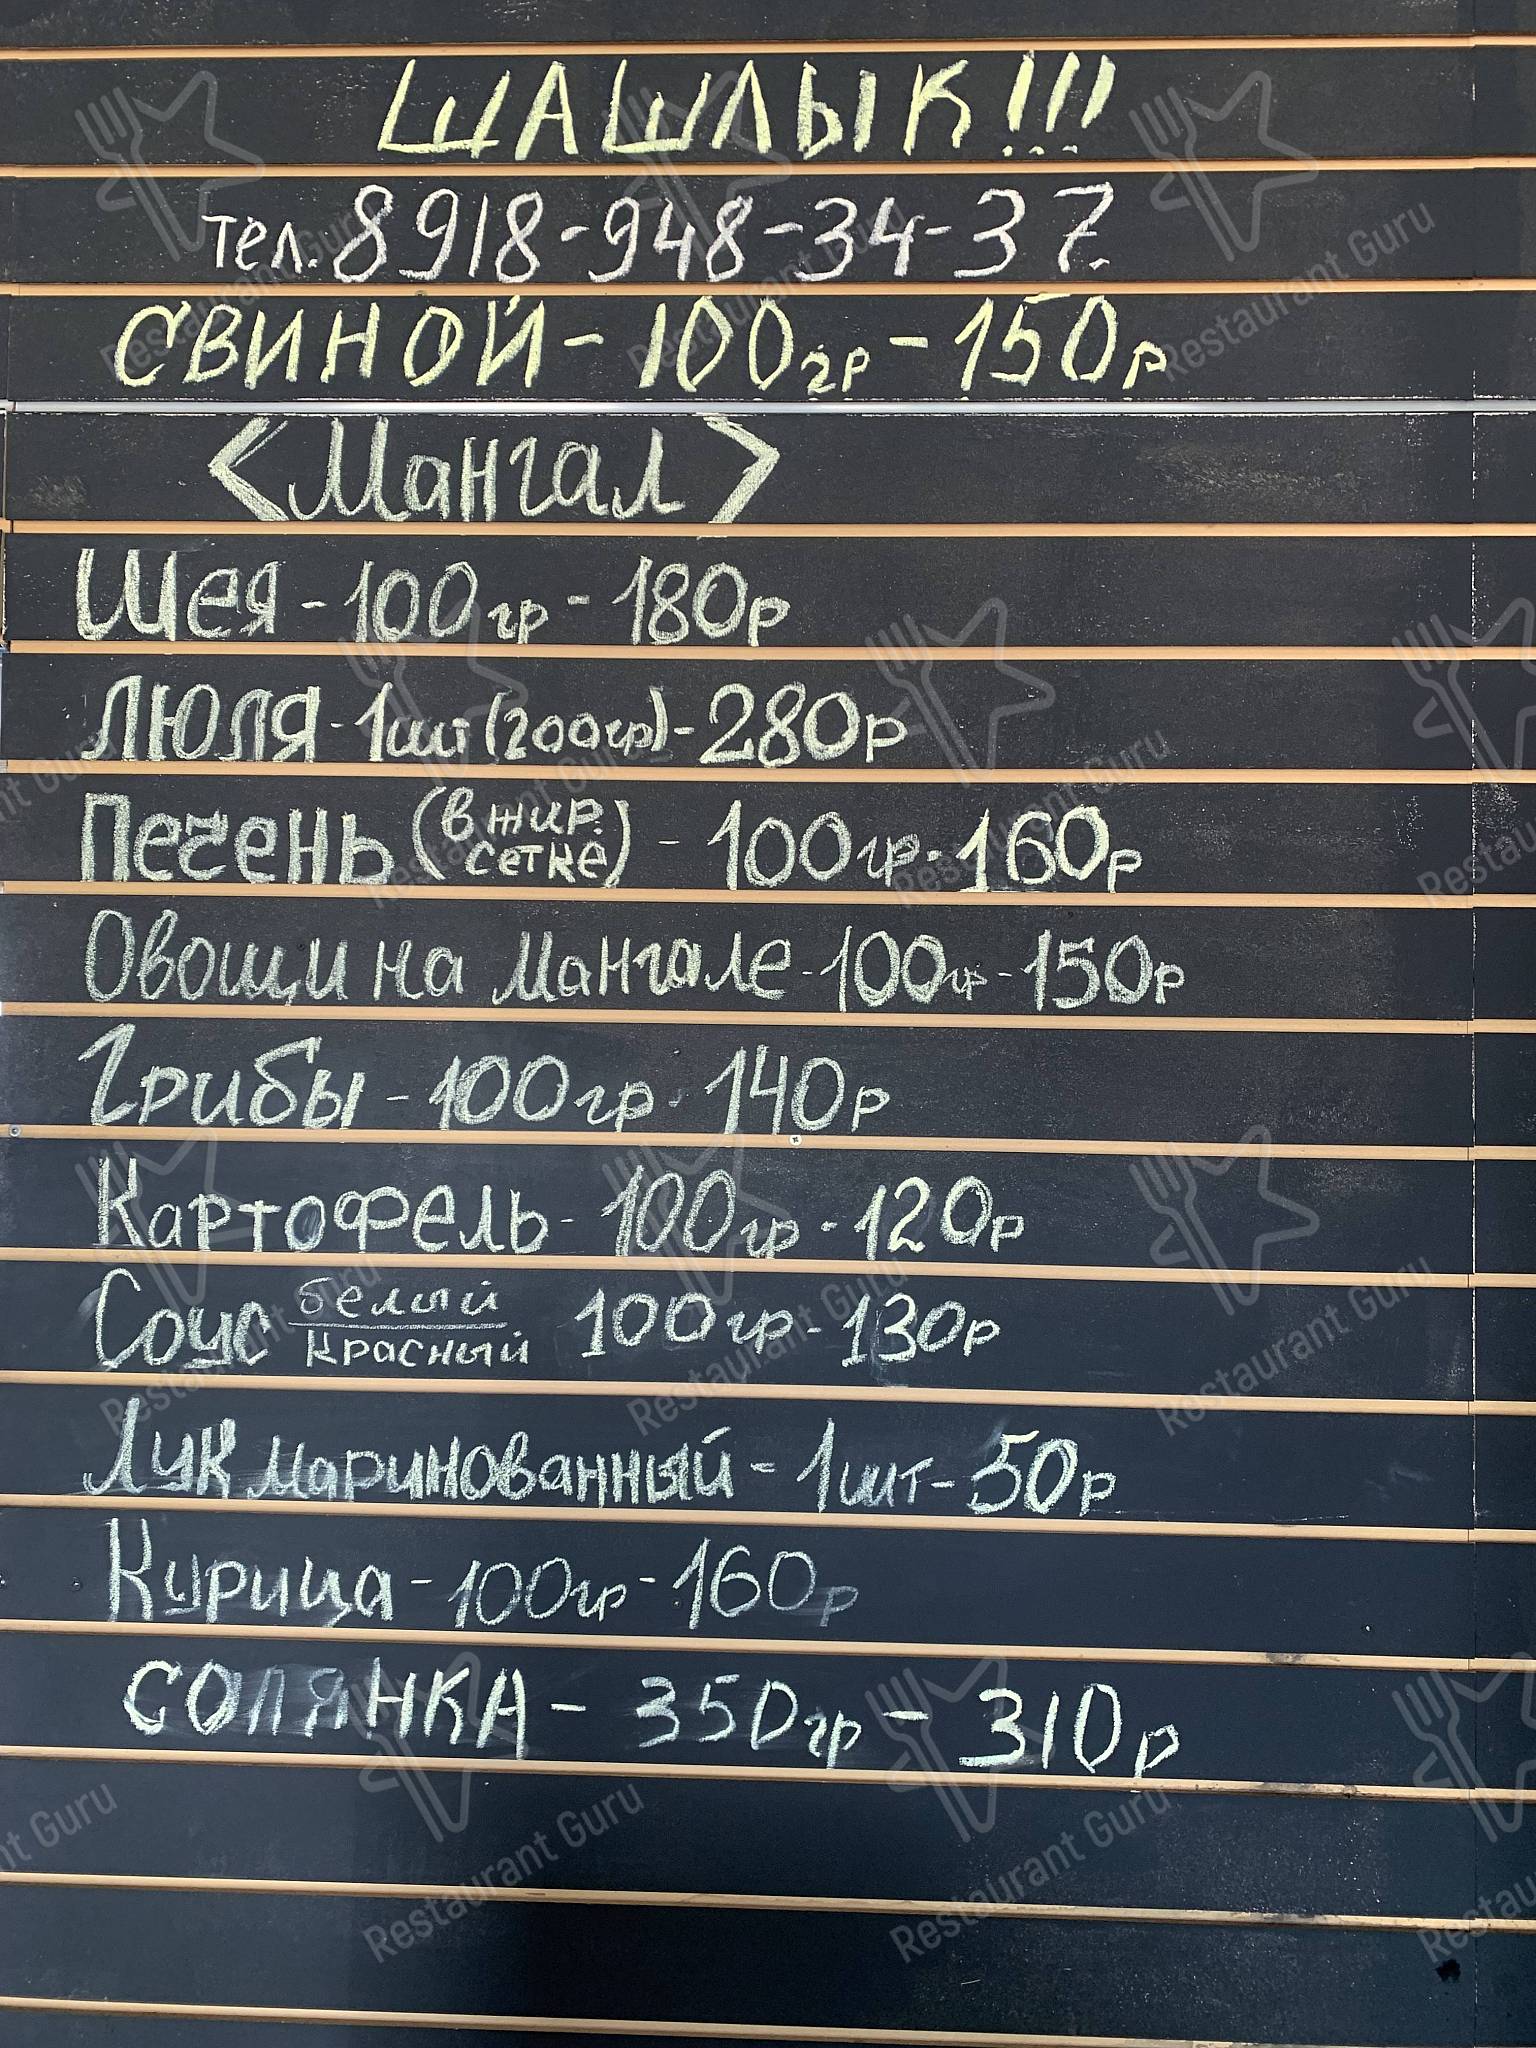 ШАШЛЫК!!!
тел. 8918-948-34-37.
СВИНОЙ - 100гр - 150р
<Мангал>
Шея - 100гр - 180р
Люля - 1шт (200гр) - 280р
Печень (в жир. сетке) - 100гр - 160р
Овощи на мангале - 100гр - 150р
Грибы - 100гр - 140р
Картофель - 100гр - 120р
Соус белый/красный 100гр - 130р
Лук маринованный - 1шт - 50р
Курица - 100гр - 160р
СОЛЯНКА - 350гр - 310р
Restaurant Guru